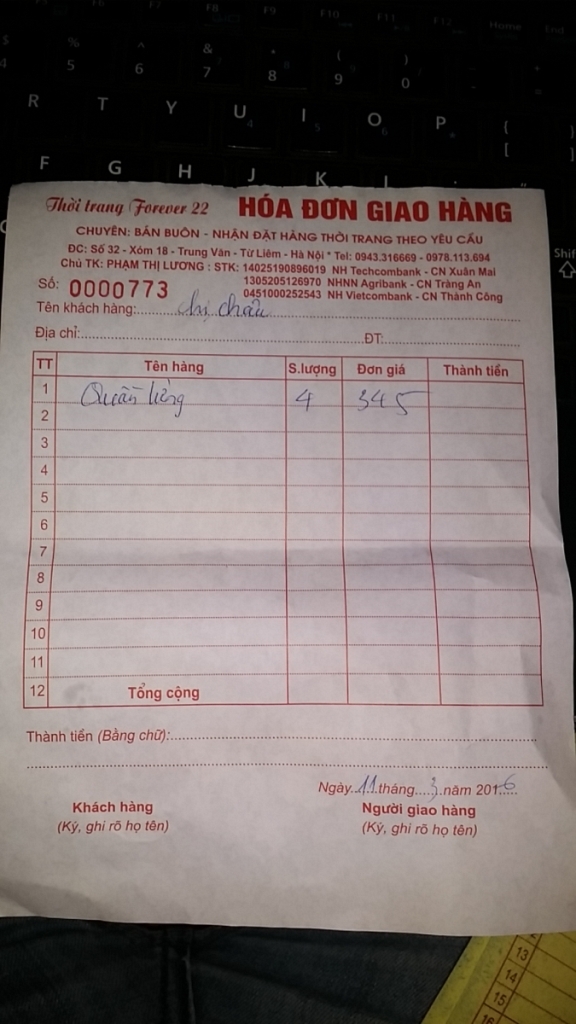 Thời trang Forever 22 HÓA ĐƠN GIAO HÀNG
CHUYÊN: BÁN BUÔN - NHẬN ĐẶT HÀNG THỜI TRANG THEO YÊU CẦU
ĐC: Số 32 - Xóm 18 - Trung Văn - Từ Liêm - Hà Nội * Tel: 0943.316669 - 0978.113.694
Chủ TK: PHẠM THỊ LƯƠNG : STK: 14025190896019 NH Techcombank - CN Xuân Mai
1305205126970 NHNN Agribank - CN Tràng An
Số: 0000773 0451000252543 NH Vietcombank - CN Thành Công
Tên khách hàng: chị châu
Địa chỉ: ĐT:
TT Tên hàng S.lượng Đơn giá Thành tiền
1 Quần 4 345
2
3
4
5
6
7
8
9
10
11
12 Tổng cộng
Thành tiền (Bằng chữ):
Ngày 11 tháng 3 năm 2016
Khách hàng Người giao hàng
(Ký, ghi rõ họ tên) (Ký, ghi rõ họ tên)
13
14
15
16
% ^ & * ( )
4 5 6 7 8 9 0
R T Y U I O P { [
F G H J K L
Shift
Home